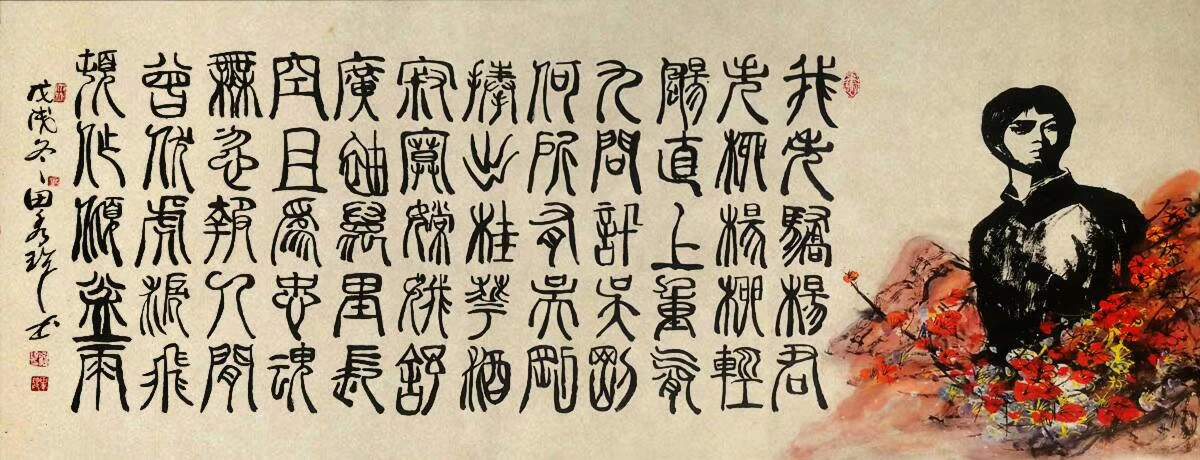 我失驕楊君
失柳楊柳輕
颺直上重霄
九問訊吳剛
何所有吳剛
捧出桂花酒
寂寞嫦娥舒
廣袖萬里長
空且為忠魂
舞忽報人間
曾伏虎淚飛
頓作傾盆雨
戊戌冬田